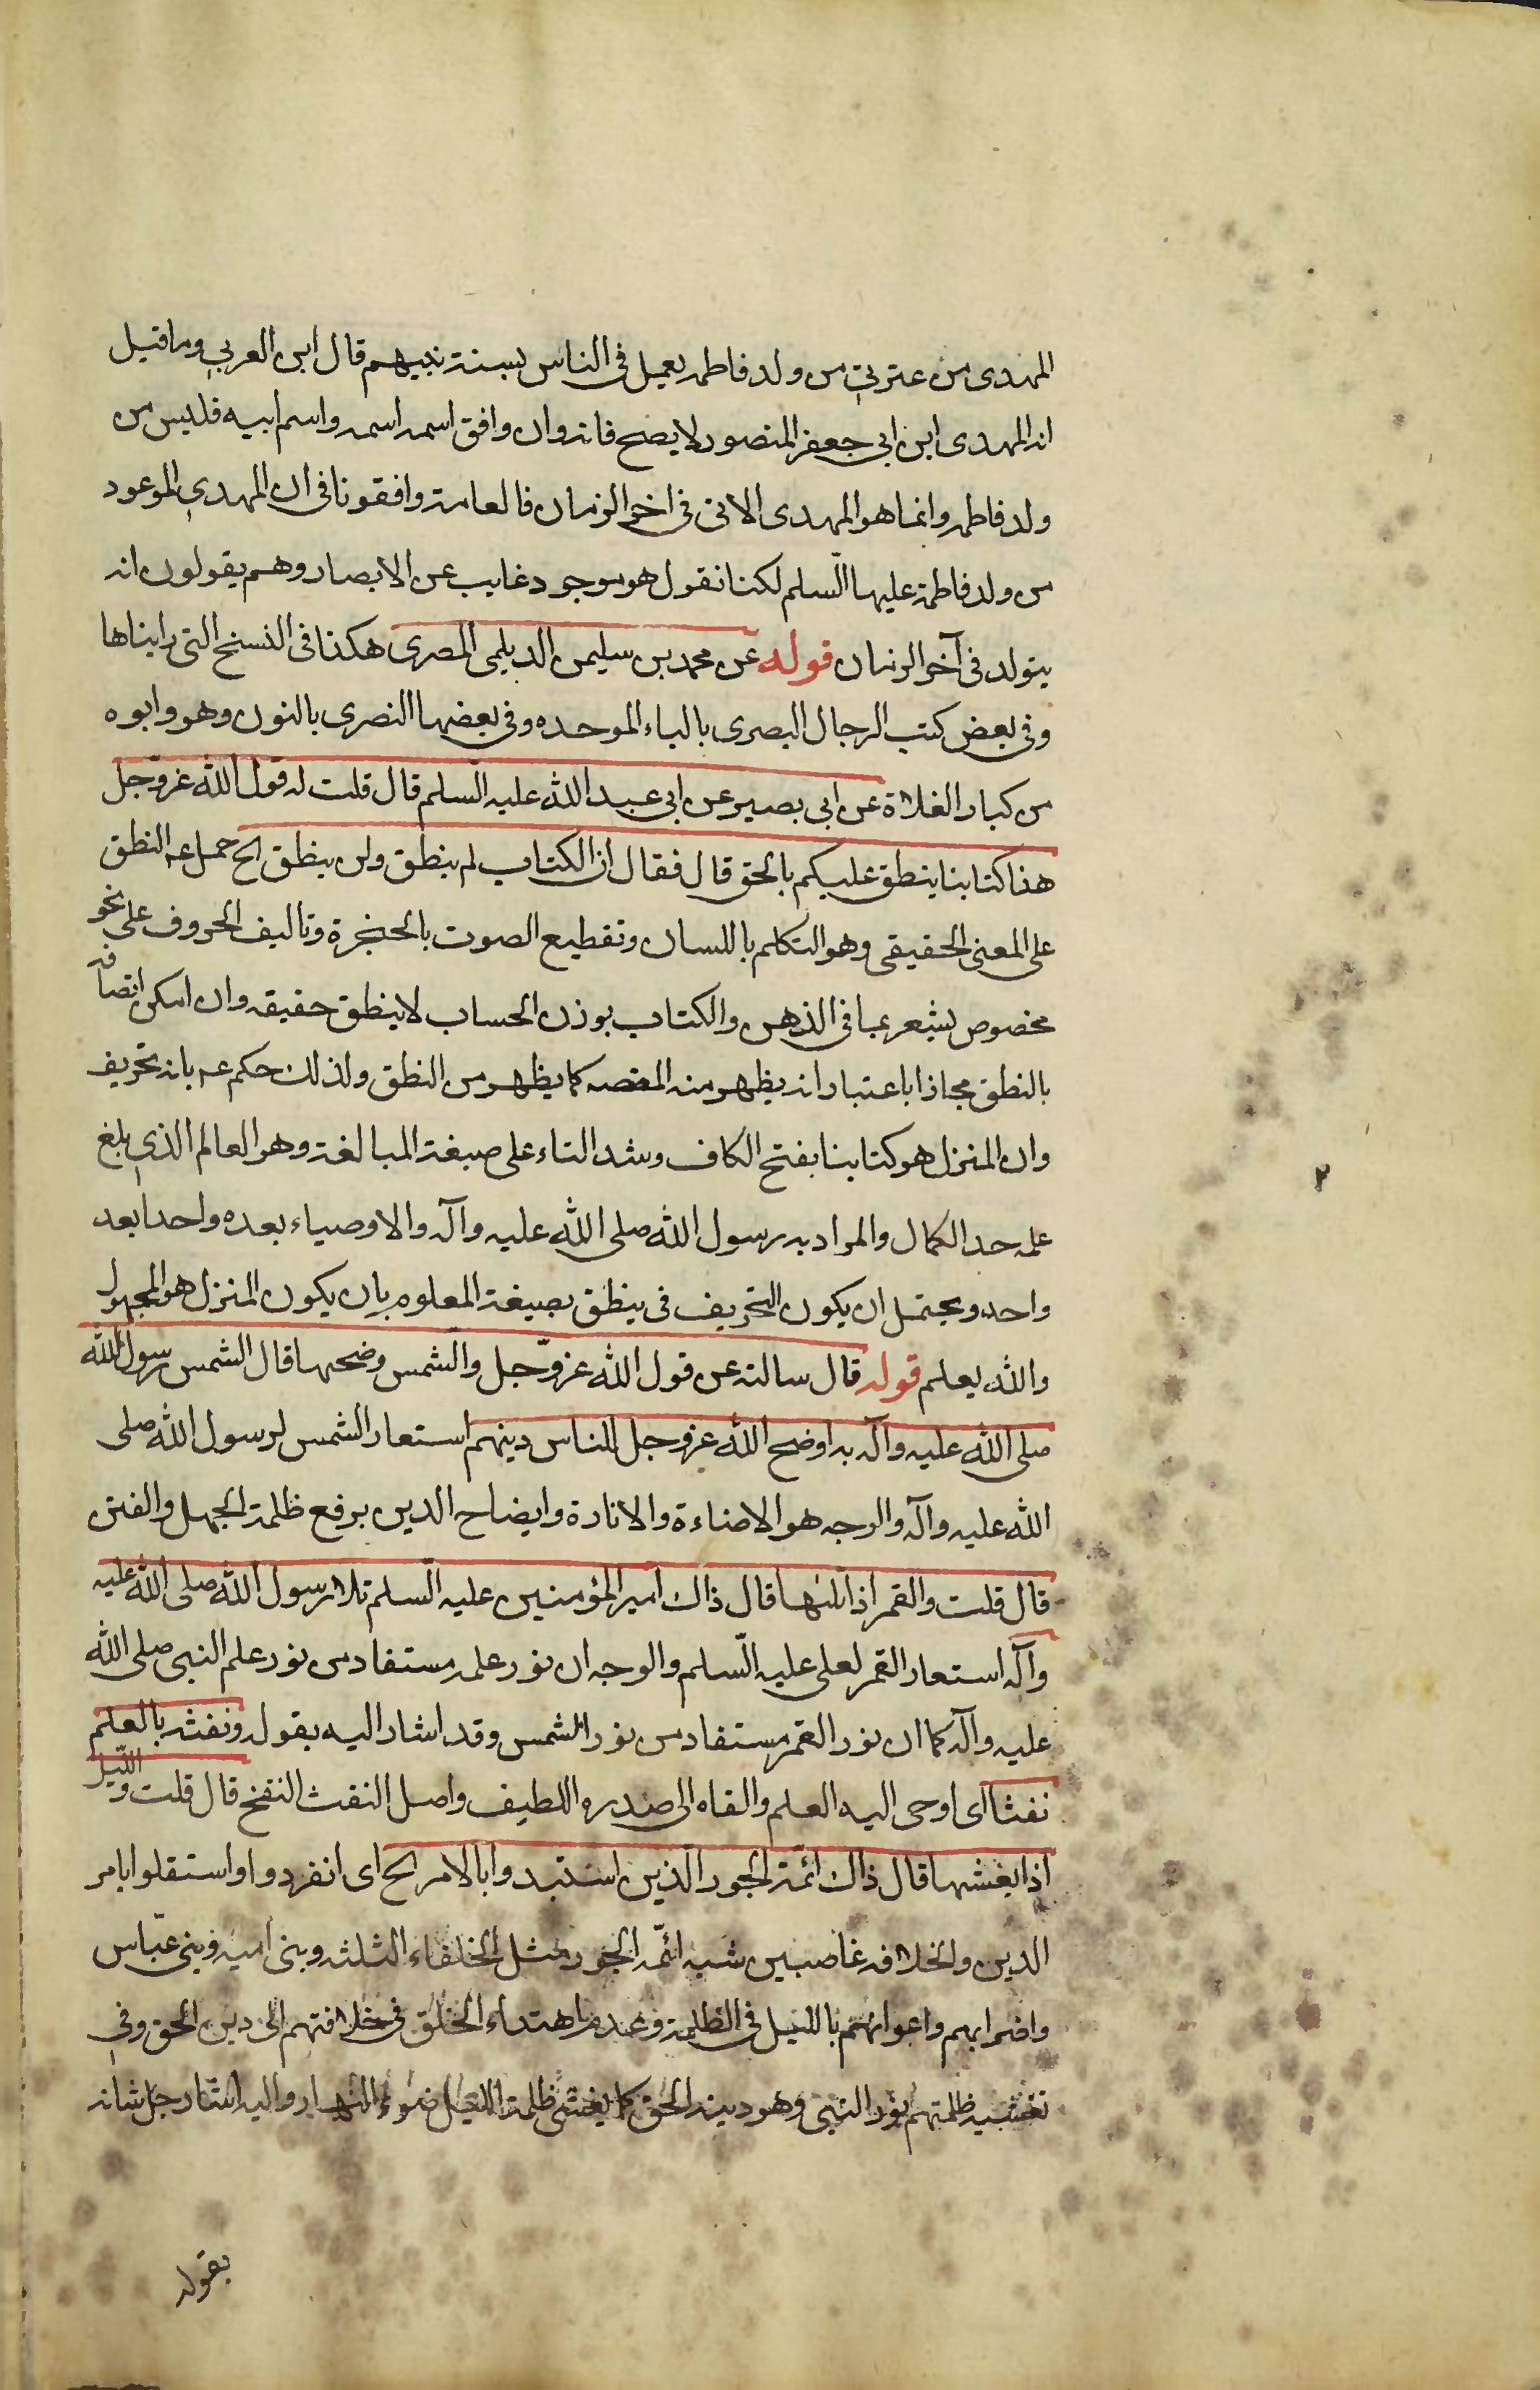 المهدى من عترتي من ولد فاطمه يعمل فى الناس بسنة نبيهم قال ابن العربي وما قيل
انه المهدى ابن ابى جعفر المنصور لا يصح فانه وان وافق اسمه اسمه واسم ابيه فليس من
ولد فاطمه وانما هو المهدى الاتى فى اخر الزمان فالعامة وافقونا فى ان المهدي الموعود
من ولد فاطمة عليها السّلم لكنا نقول هو موجود غايب عن الابصار وهم يقولون انه
يتولد فى آخر الزمان قوله عن محمد بن سليمن الديلمى المصرى هكذا فى النسخ التى رايناها
وفى بعض كتب الرجال البصرى بالباء الموحده وفى بعضها النصرى بالنون وهو وابوه
من كبار الغلاة عن ابى بصير عن ابى عبد الله عليه السلم قال قلت له قول الله عز وجل
هذا كتابنا ينطق عليكم بالحق قال فقال ان الكتاب لم ينطق ولن ينطق الخ حمل عه النطق
على المعنى الحقيقى وهو التكلم باللسان وتقطيع الصوت بالحنجرة وتاليف الحروف على نحو
مخصوص يشعر بما فى الذهن والكتاب بوزن الحساب لا ينطق حقيقه وان امكن اتصافه
بالنطق مجازا باعتبار انه يظهر منه المقصه كما يظهر من النطق ولذلك حكم عه بانه تحريف
وان المنزل هو كتابنا بفتح الكاف وشد التاء على صيغة المبالغة وهو العالم الذي بلغ
علمه حد الكمال والمراد به رسول الله صلى الله عليه وآله والاوصياء بعده واحدا بعد
واحد ويحتمل ان يكون التحريف فى ينطق بصيغة المعلوم بان يكون المنزل هو المجهول
والله يعلم قوله قال سالته عن قول الله عز وجل والشمس وضحيها قال الشمس رسول الله
صلى الله عليه وآله به اوضح الله عز وجل للناس دينهم استعار الشمس لرسول الله صلى
الله عليه وآله والوجه هو الاضاءة والانارة وايضاح الدين برفع ظلمة الجهل والفتن
قال قلت والقمر اذا تليها قال ذاك امير المؤمنين عليه السّلم تلا رسول الله صلى الله عليه
وآله استعار القمر لعلى عليه السّلم والوجه ان نور علمه مستفاد من نور علم النبى صلى الله
عليه وآله كما ان نور القمر مستفاد من نور الشمس وقد اشار اليه بقوله ونفثه بالعلم
نفثا اى اوحى اليه العلم والقاه الى صدره اللطيف واصل النفث النفخ قال قلت والليل
اذا يغشيها قال ذاك ائمة الجور الذين استبدوا بالامر الخ اى انفردوا واستقلوا بامر
الدين والخلافه غاصبين شبه ائمّه الجور مثل الخلفاء الثلثه وبنى اميه وبنى عبّاس
واضرابهم واعوانهم بالليل فى الظلمة وعدم اهتداء الخلق فى خلافتهم الى دين الحق وفي
تغشيه ظلمتهم نور النبي وهو دينه الحق كما يغشى ظلمة الليل ضوء النهار واليه اشار جل شانه
بقوله
٢